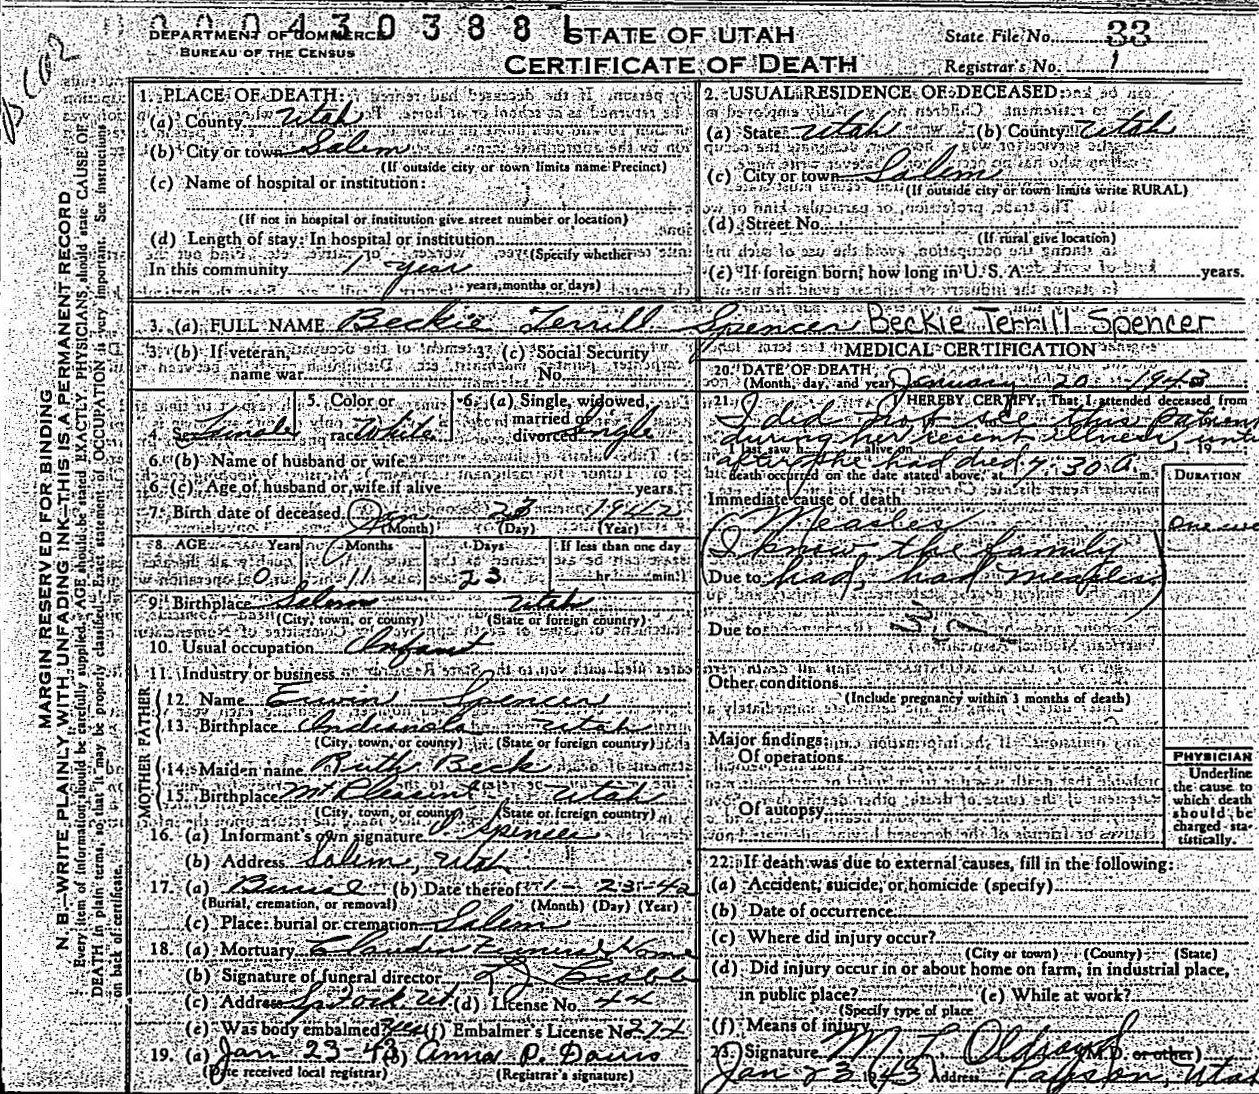 0004303881
DEPARTMENT OF COMMERCE
BUREAU OF THE CENSUS
STATE OF UTAH
CERTIFICATE OF DEATH
State File No. 33
Registrar's No. 1
MARGIN RESERVED FOR BINDING
N. B.—WRITE PLAINLY, WITH UNFADING INK—THIS IS A PERMANENT RECORD
Every item of information should be carefully supplied. AGE should be stated EXACTLY. PHYSICIANS should state CAUSE OF
DEATH in plain terms, so that it may be properly classified. Exact statement of OCCUPATION is very important. See instructions
on back of certificate.
1. PLACE OF DEATH:
(a) County Utah
(b) City or town Salem
(If outside city or town limits name Precinct)
(c) Name of hospital or institution:
(If not in hospital or institution give street number or location)
(d) Length of stay: In hospital or institution
(Specify whether
In this community 1 year
years, months or days)
2. USUAL RESIDENCE OF DECEASED:
(a) State Utah (b) County Utah
(c) City or town Salem
(If outside city or town limits write RURAL)
(d) Street No.
(If rural give location)
(e) If foreign born, how long in U. S. A. years.
3. (a) FULL NAME Beckie Terrill Spencer Beckie Terrill Spencer
3. (b) If veteran, name war
3. (c) Social Security No.
4. Sex Female
5. Color or race White
6. (a) Single, widowed, married or divorced Single
6. (b) Name of husband or wife
6. (c) Age of husband or wife if alive years.
7. Birth date of deceased Jan 28 1942
(Month) (Day) (Year)
8. AGE Years Months Days If less than one day
0 11 23 hr. min.
9. Birthplace Salem Utah
(City, town, or county) (State or foreign country)
10. Usual occupation Infant
11. Industry or business
FATHER
12. Name Erwin Spencer
13. Birthplace Indianola Utah
(City, town, or county) (State or foreign country)
MOTHER
14. Maiden name Ruth Beck
15. Birthplace Mt Pleasant Utah
(City, town, or county) (State or foreign country)
16. (a) Informant's own signature Spencer
(b) Address Salem, Utah
17. (a) Burial (b) Date thereof 1-23-43
(Burial, cremation, or removal) (Month) (Day) (Year)
(c) Place: burial or cremation Salem
18. (a) Mortuary Claudin Funeral Home
(b) Signature of funeral director
(c) Address Sp Fork Ut (d) License No. 44
(e) Was body embalmed? Yes (f) Embalmer's License No. 274
19. (a) Jan 23-43 (b) Anna P. Davis
(Date received local registrar) (Registrar's signature)
MEDICAL CERTIFICATION
20. DATE OF DEATH
(Month, day, and year) January 20 1943
21. I HEREBY CERTIFY, That I attended deceased from
I did not see this patient
during her recent illness, until
I last saw h alive on 19
after she had died 7:30 A
death occurred on the date stated above, at m.
DURATION
Immediate cause of death
Measles One
(I know the family
Due to had, had measles)
Due to
Other conditions
(Include pregnancy within 3 months of death)
Major findings:
Of operations
Of autopsy
PHYSICIAN
Underline
the cause to
which death
should be
charged sta-
tistically.
22. If death was due to external causes, fill in the following:
(a) Accident, suicide, or homicide (specify)
(b) Date of occurrence
(c) Where did injury occur?
(City or town) (County) (State)
(d) Did injury occur in or about home on farm, in industrial place,
in public place? (e) While at work?
(Specify type of place
(f) Means of injury
23. Signature M. L. Oldroyd (M.D. or other)
Jan 23 1943 Address Payson, Utah